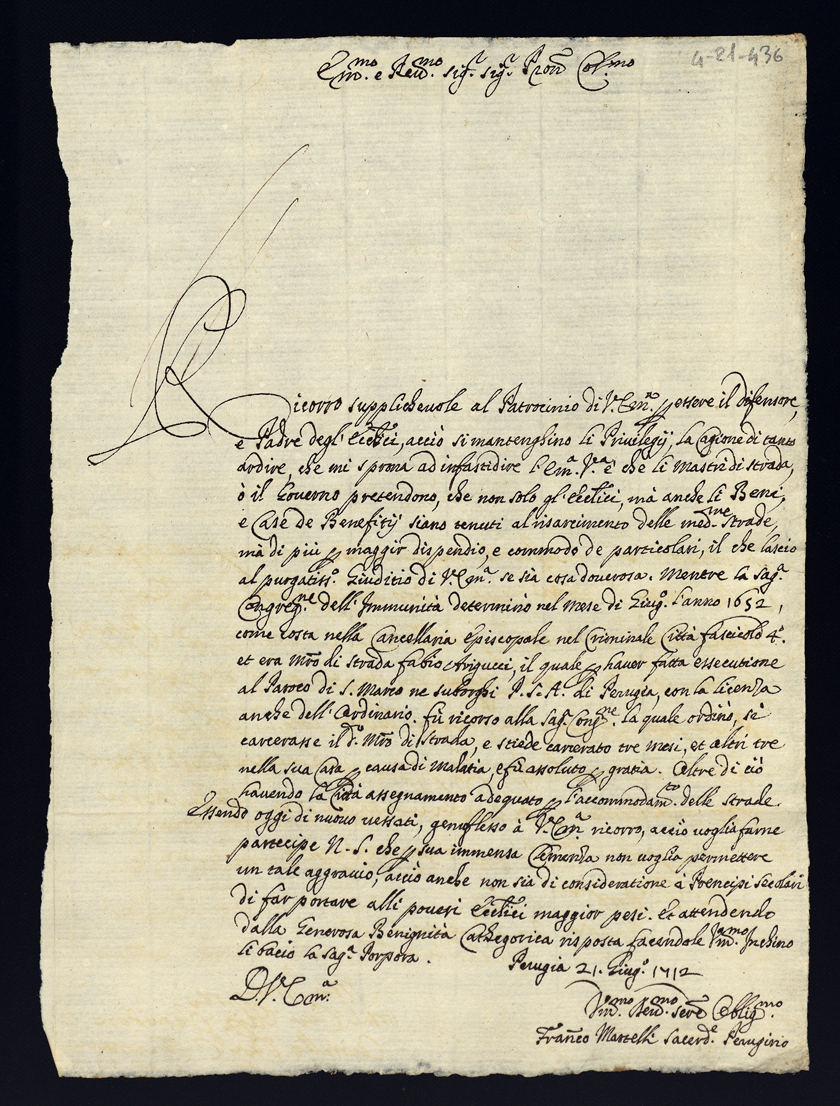 4-21-436
Em.mo e Reu.mo Sig.r Sig.r Pron Col.mo
Ricorro supplicheuole al Patrocinio di V. Em.a p essere il difensore,
e Padre degl' Eccl'ici, acciò si mantenghino li Privilegij, la Cagione di tanto
ardire, che mi sprona ad infastidire l'Em.a V.ra è che li Mastri di strada,
ò il Governo pretendono, che non solo gl'Eccl'ici, mà anche li Beni,
e Case de Benefitij siano tenuti al risarcimento delle med.me Strade,
mà di più p maggior dispendio, e commodo de particolari, il che lascio
al purgatiss.o Giuditio di V. Em.a se sia cosa douerosa. Mentre la Sag.a
Congreg.ne dell'Immunità determinò nel mese di Giug.o l'anno 1652,
come costa nella Cancellaria Episcopale nel Criminale Città fascicolo 4.o
et era Mro di strada fabio Arigucci, il quale p hauer fatta essecutione
al Paroco di S. Marco ne suborghi P. S. A. di Perugia, con la licenza
anche dell'Ordinario. fù ricorso alla Sag. Cong.ne la quale ordinò, si
carcerasse il d.o Mro di strada, e stiede carcerato tre mesi, et altri tre
nella sua Casa p causa di Malatia, e fù assoluto p gratia. Oltre di ciò
hauendo la Città assegnamento adequato p l'accommodam.to delle strade.
Essendo oggi di nuouo uessati, genuflesso à V. Em.a ricorro, acciò voglia farne
partecipe N. S. che p sua immensa Clemenza non voglia permettere
un tale aggrauio, acciò anche non sia di consideratione a Prencipi Secolari
di far portare alli poueri Eccl'ici maggior pesi. Et attendendo
dalla Generosa Benignità Cathegorica risposta facendole Um.mo Inchino
li bacio la Sag.a Porpora.
Perugia 21. Giug.o 1712
D. V. Em.a
Um.mo Deu.mo Seruo Oblig.mo
Franco Martelli Sacerd.e Perugino